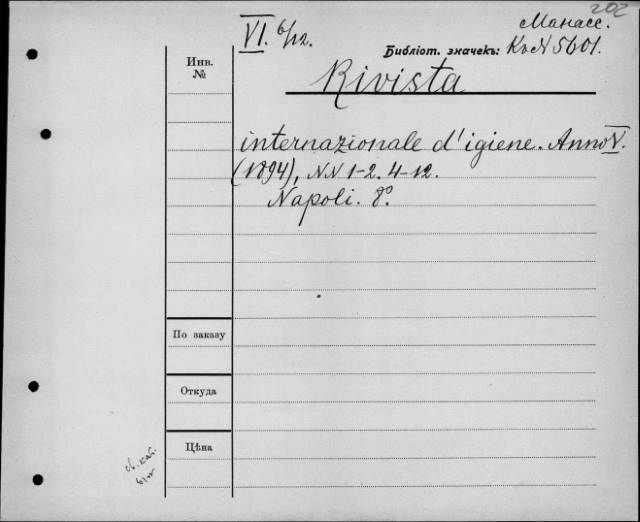 202
VI. 6/12.
Манасс.
Библіот. значекъ: К. N 5601.
Инв. №
Rivista
internazionale d'igiene. Anno V.
(1894), NN 1-2. 4-12.
Napoli. 8º.
По заказу
Откуда
Цѣна